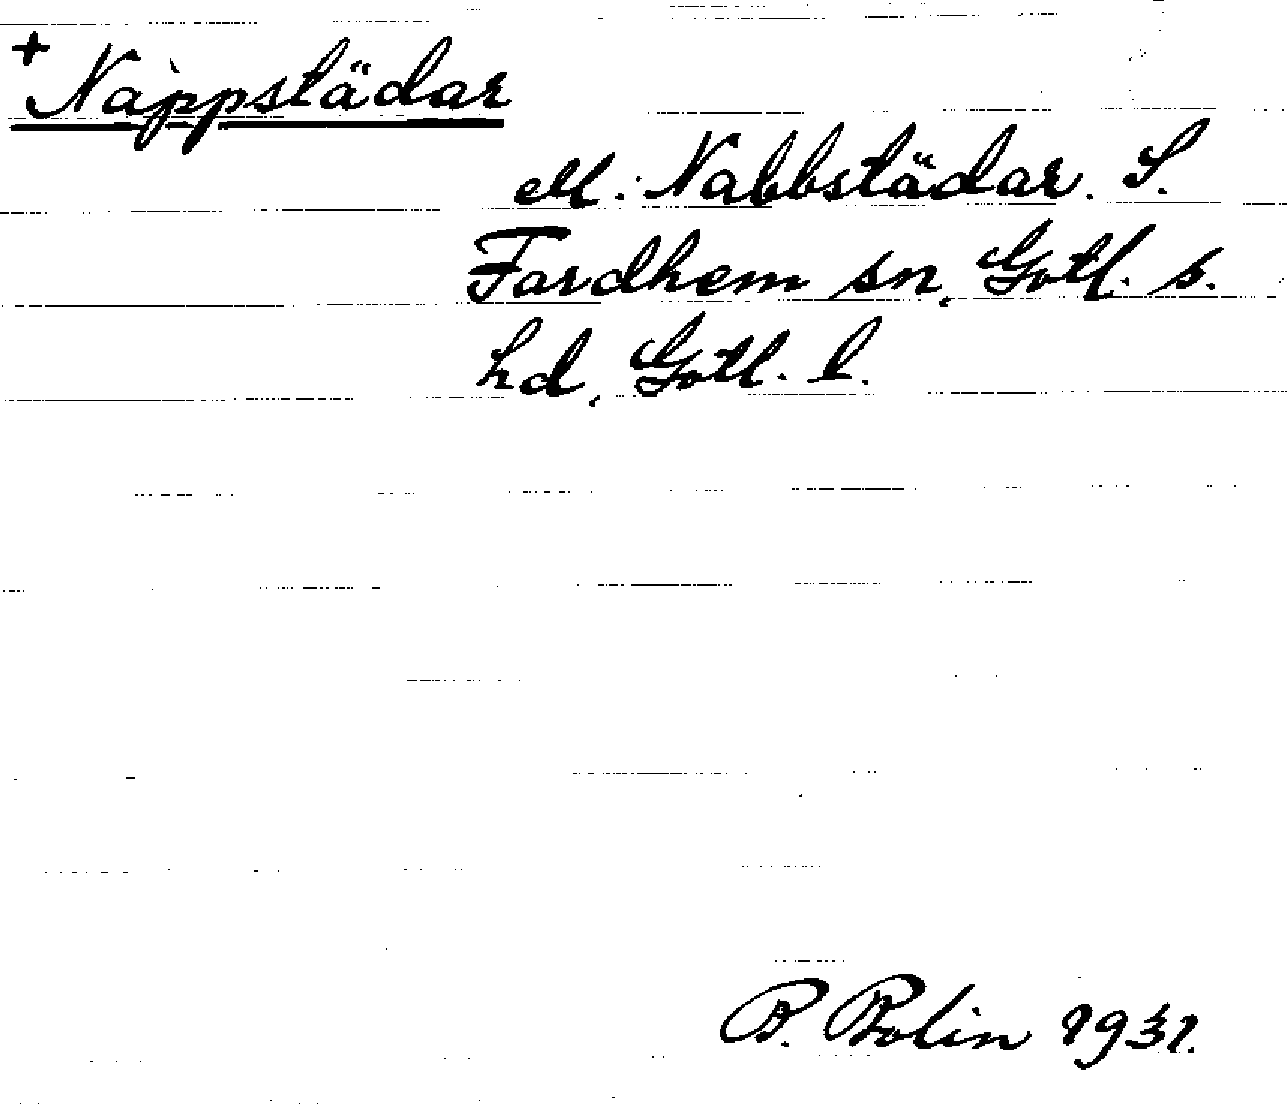 + Nàppstädar
M. Nabbstädar. S.
Fardhem sn, Gotl. s.
hd, Gotl. l.
B. Bolin 1931.